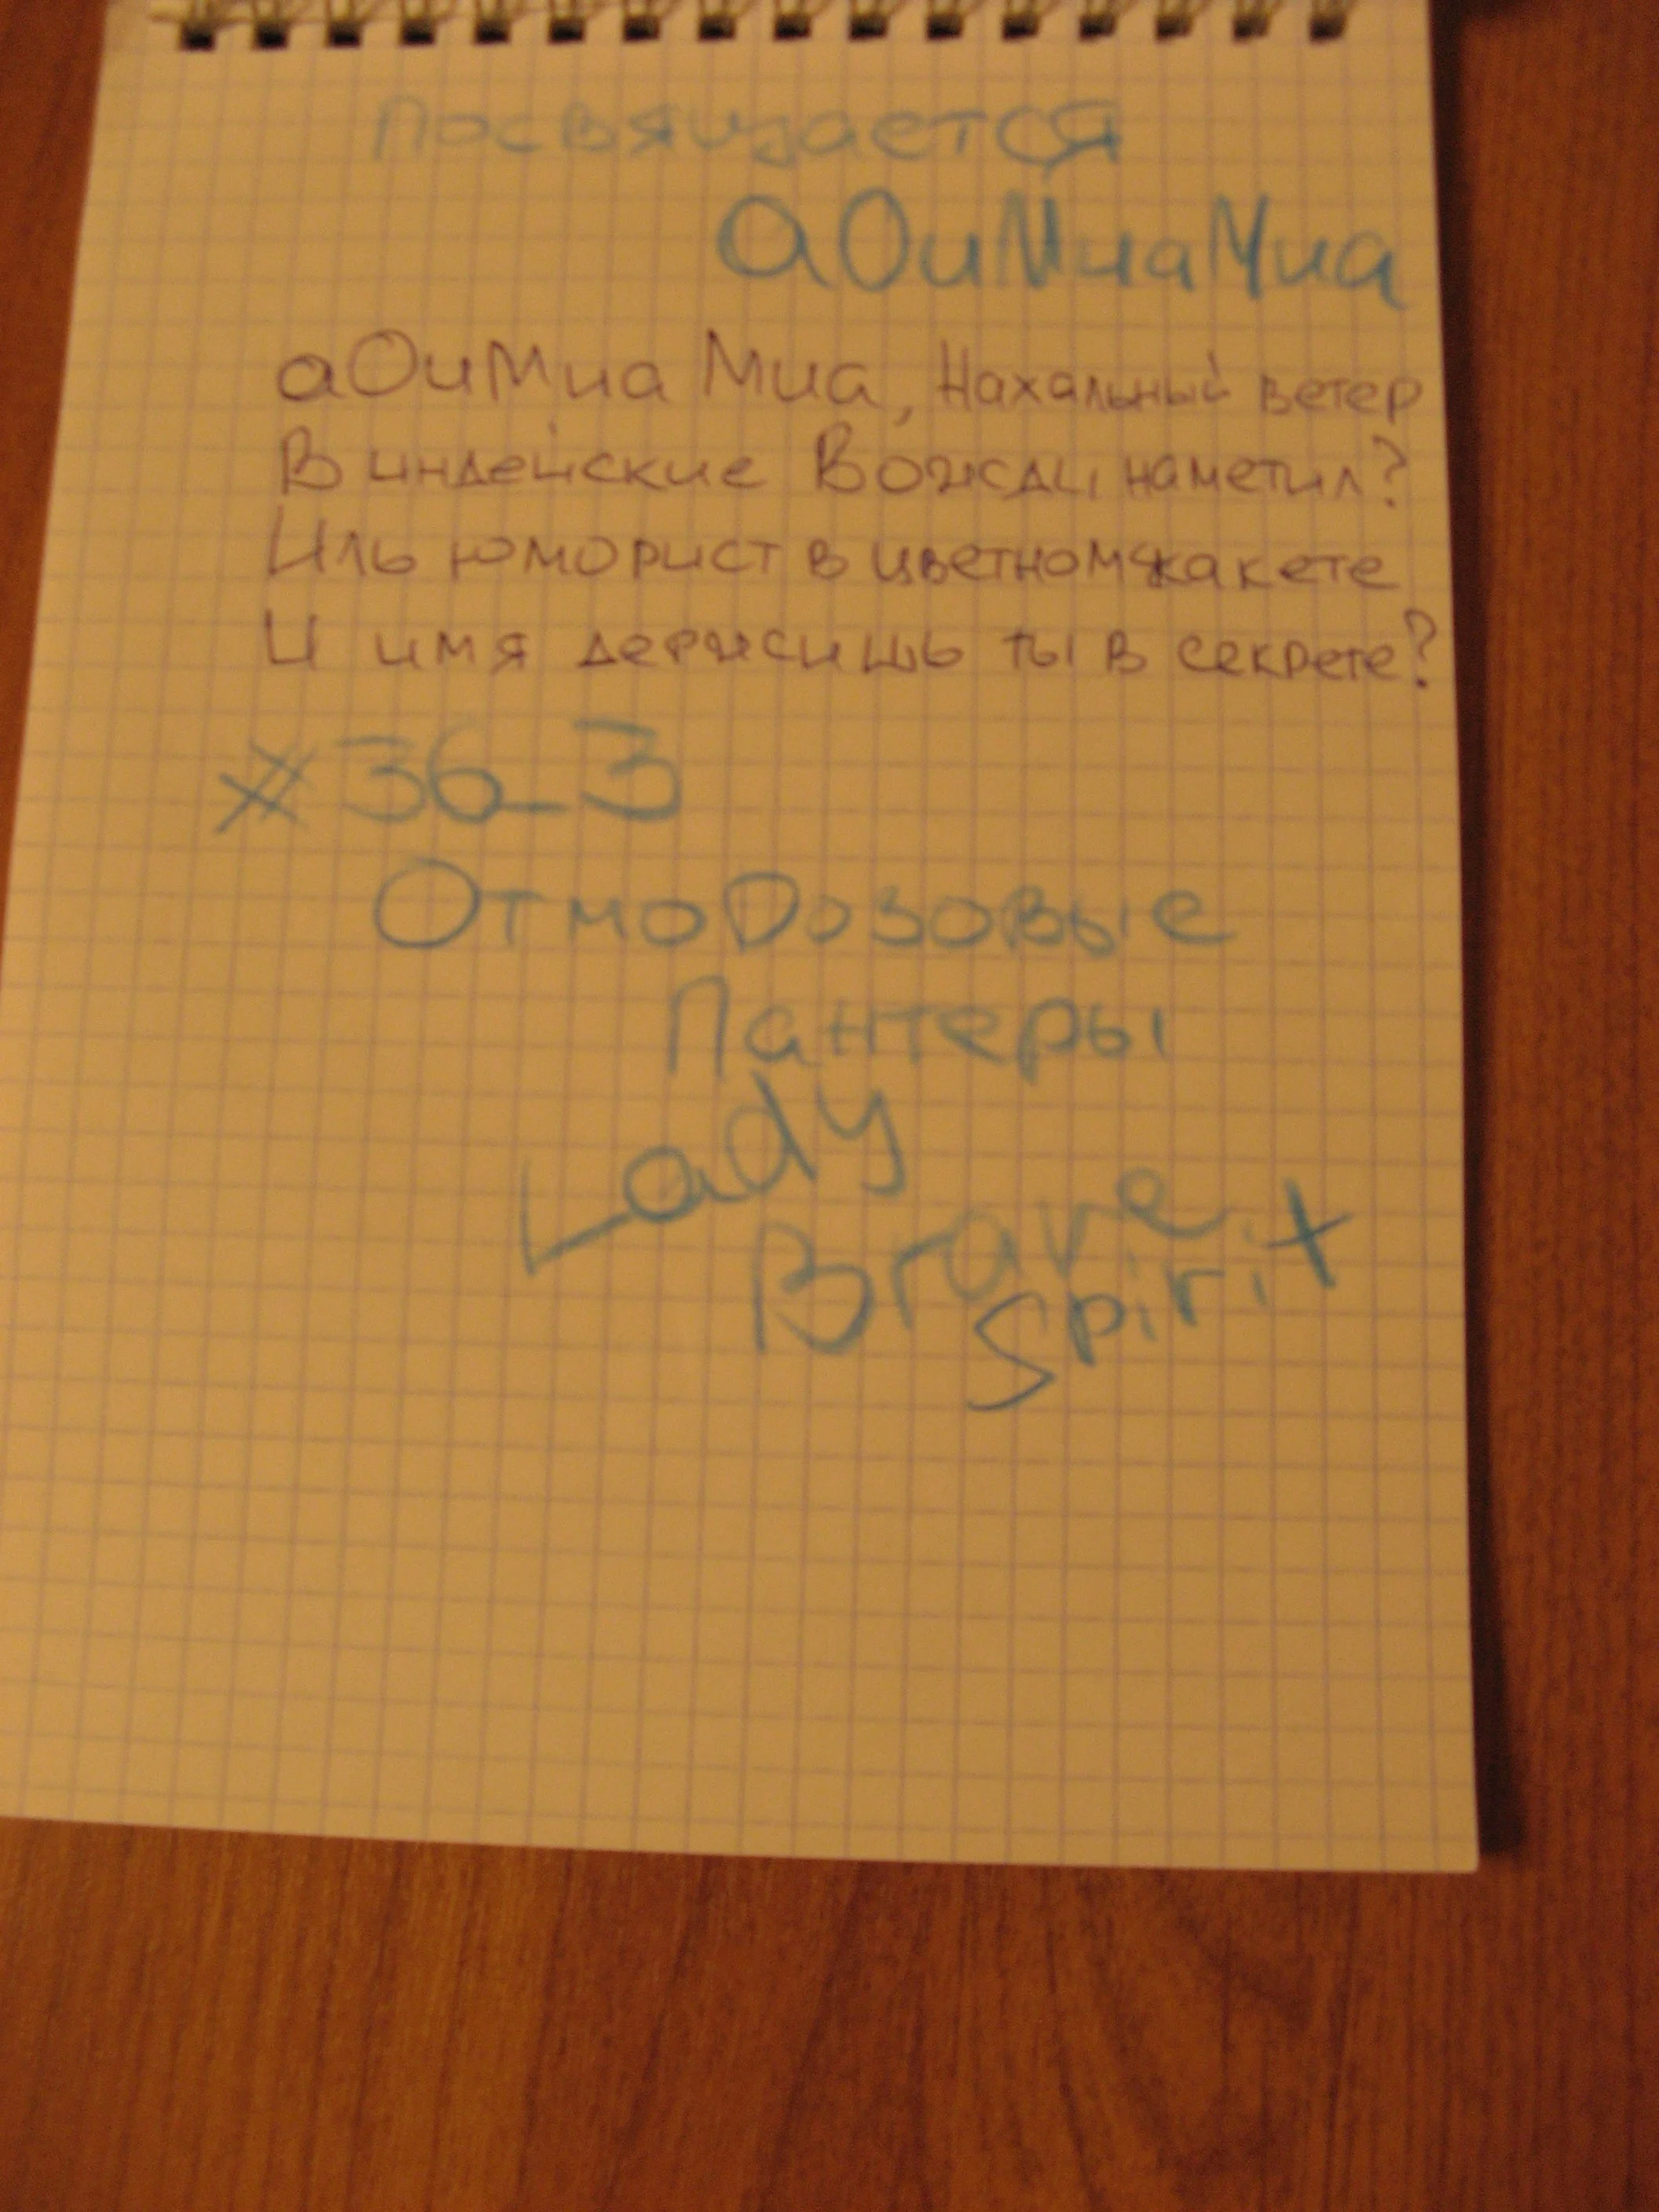 Посвящается
аОиМиаМиа
аОиМиа Миа, Нахальный ветер
В индейские Вожди наметил?
Иль юморист в цветном жакете
И имя держишь ты в секрете?
#36_3
Отмороzовые
Пантеры
Lady
Brave
Spirit